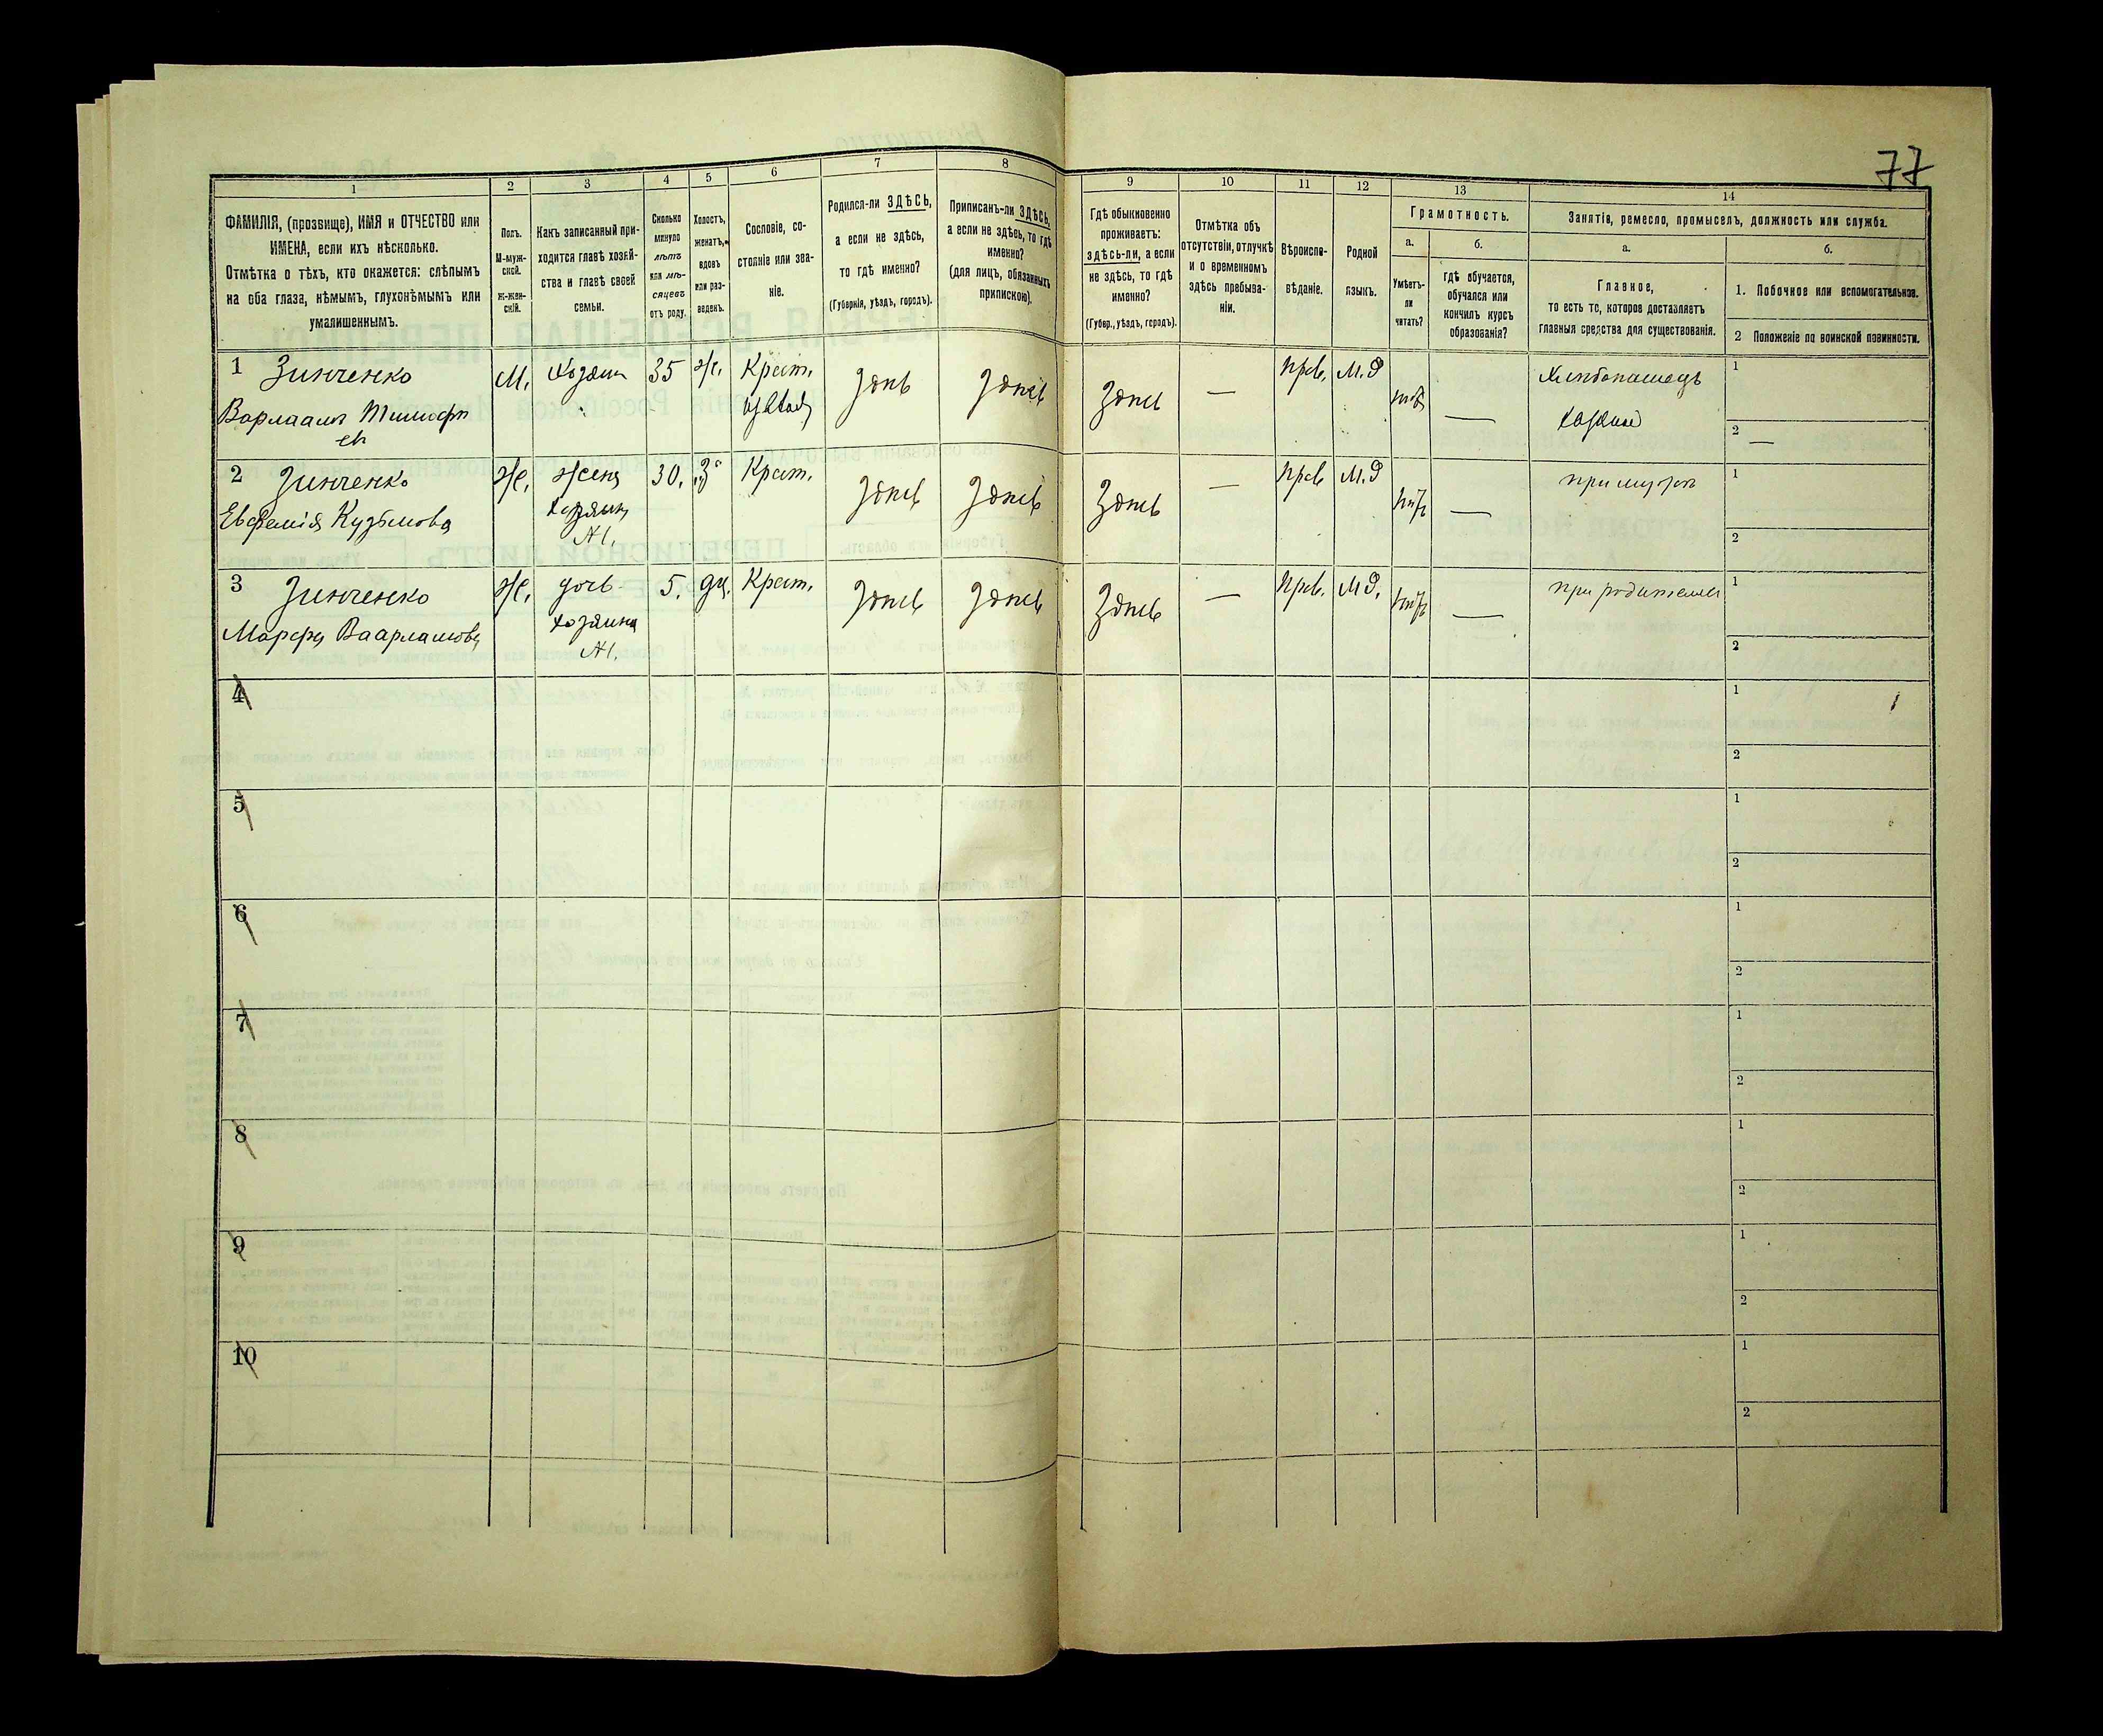 77
1
2
3
4
5
6
7
8
9
10
11
12
13
14
ФАМИЛІЯ, (прозвище), ИМЯ и ОТЧЕСТВО или
ИМЕНА, если ихъ нѣсколько.
Отмѣтка о тѣхъ, кто окажется: слѣпымъ
на оба глаза, нѣмымъ, глухонѣмымъ или
умалишеннымъ.
Полъ.
М-муж-
ской.
ж-жен-
скій.
Какъ записанный при-
ходится главѣ хозяй-
ства и главѣ своей
семьи.
Сколько
минуло
лѣтъ
или мѣ-
сяцевъ
отъ роду.
Холостъ,
женатъ,
вдовъ
или раз-
веденъ.
Сословіе, со-
стояніе или зва-
ніе.
Родился-ли ЗДѢСЬ,
а если не здѣсь,
то гдѣ именно?
(Губернія, уѣздъ, городъ).
Приписанъ-ли ЗДѢСЬ,
а если не здѣсь, то гдѣ
именно?
(для лицъ, обязанныхъ
припискою).
Гдѣ обыкновенно
проживаетъ:
здѣсь-ли, а если
не здѣсь, то гдѣ
именно?
(Губер., уѣздъ, городъ).
Отмѣтка объ
отсутствіи, отлучкѣ
и о временномъ
здѣсь пребыва-
ніи.
Вѣроиспо-
вѣданіе.
Родной
языкъ.
Грамотность.
а.
б.
Умѣетъ-
ли
читать?
гдѣ обучается,
обучался или
кончилъ курсъ
образованія?
Занятія, ремесло, промыселъ, должность или служба.
а.
б.
Главное,
то есть то, которое доставляетъ
главныя средства для существованія.
1. Побочное или вспомогательное.
2 Положеніе по воинской повинности.
1 Зинченко М. Хозяин 35 ж. Крест. Здѣсь Здѣсь Здѣсь — прав. М.Р нѣт — Хлебопашецъ 1
Варлаамъ Тимофѣ
ев
хозяин 2 —
2 Зинченко Ж. жена 30. З. Крест. Здѣсь Здѣсь Здѣсь — прав. М.Р нѣт — при мужѣ 1
Евфемія Кузьмова хозяина 2
№1.
3 Зинченко Ж. дочь 5. дѣ. Крест. Здѣсь Здѣсь Здѣсь — прав. М.Р. нѣт — при родителях 1
Марфа Ваарламова хозяина 2
№1.
4 1
2
5 1
2
6 1
2
7 1
2
8 1
2
9 1
2
10 1
2